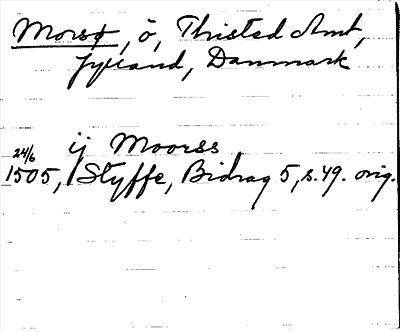 Morsø, ö, Thisted Amt,
Jylland, Danmark
ij Moorss
24/6
1505, Styffe, Bidrag 5, s. 49. orig.